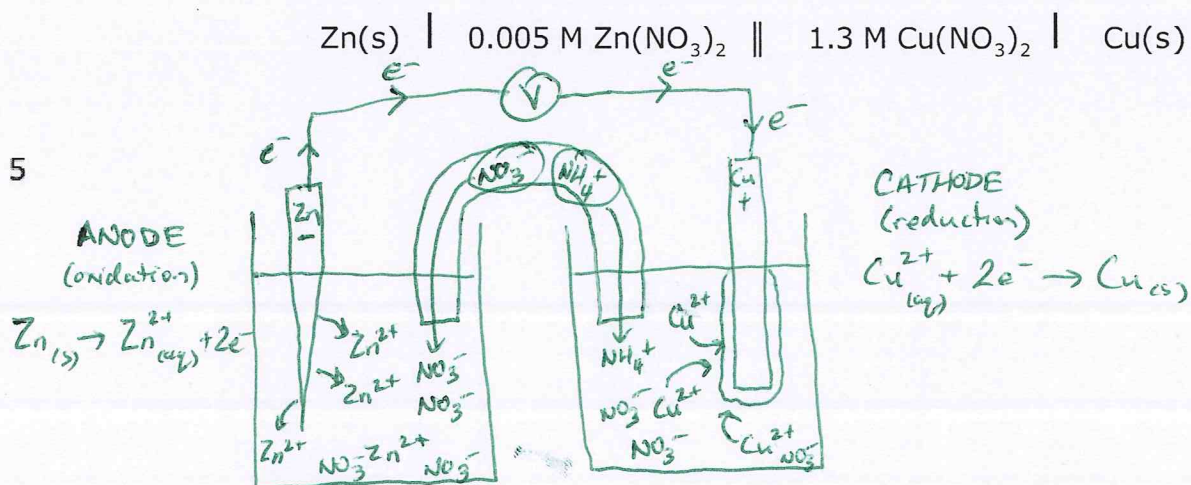 Zn(s) | 0.005 M Zn(NO₃)₂ || 1.3 M Cu(NO₃)₂ | Cu(s)
e⁻ V e⁻
e⁻ e⁻
5
NO₃⁻ NH₄⁺
Zn
−
Cu
+
ANODE
(oxidation)
Zn(s) → Zn²⁺(aq) + 2e⁻
CATHODE
(reduction)
Cu²⁺(aq) + 2e⁻ → Cu(s)
Zn²⁺
Zn²⁺
Zn²⁺
NO₃⁻
NO₃⁻
NO₃⁻ Zn²⁺ NO₃⁻
NH₄⁺
Cu²⁺
NO₃⁻ Cu²⁺
NO₃⁻
Cu²⁺
NO₃⁻